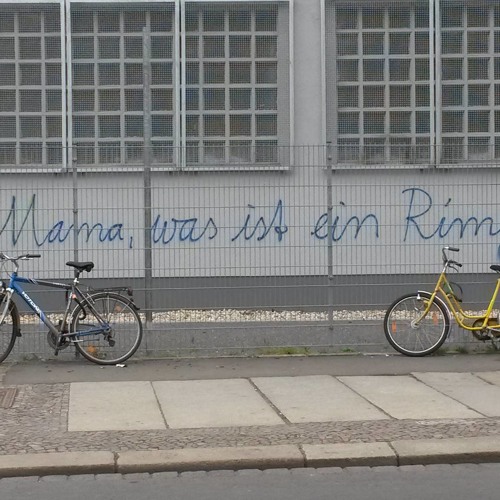 Mama, was ist ein Rim